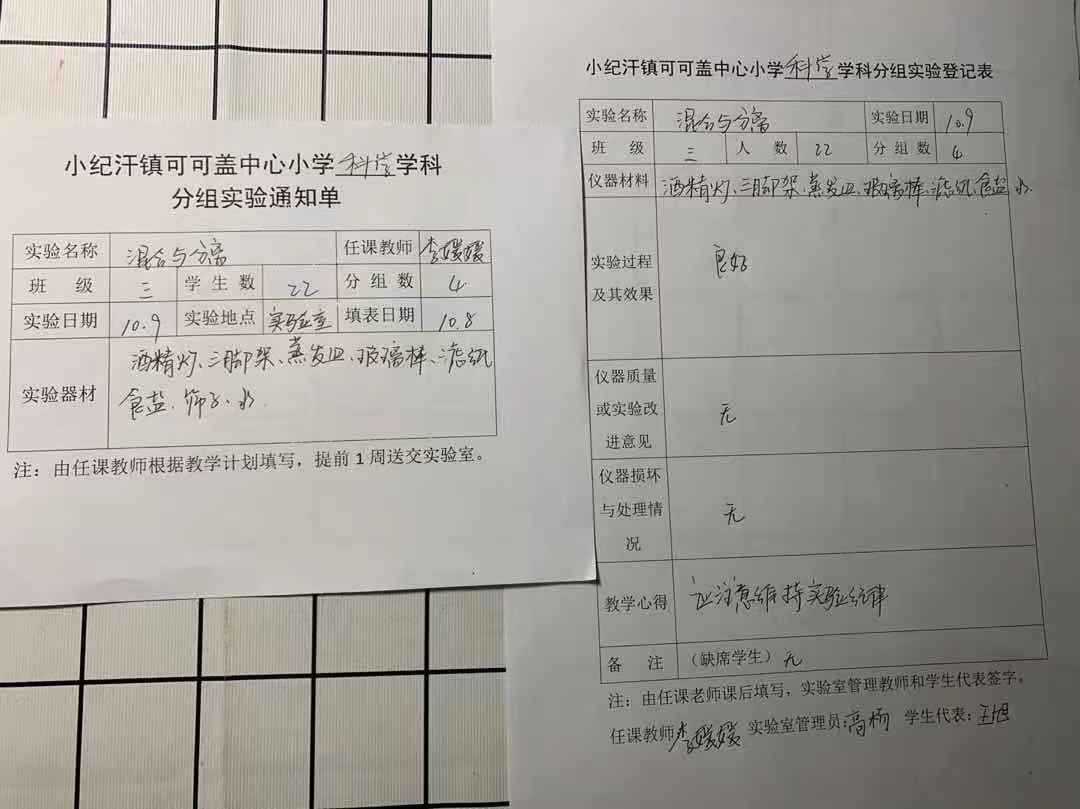 小纪汗镇可可盖中心小学科学学科
分组实验通知单
实验名称 混合与分离 任课教师 李媛媛
班 级 三 学生数 22 分组数 4
实验日期 10.9 实验地点 实验室 填表日期 10.8
实验器材 酒精灯、三脚架、蒸发皿、玻璃棒、滤纸
食盐、筛子、水
注：由任课教师根据教学计划填写，提前1周送交实验室。
小纪汗镇可可盖中心小学科学学科分组实验登记表
实验名称 混合与分离 实验日期 10.9
班 级 三 人 数 22 分组数 4
仪器材料 酒精灯、三脚架、蒸发皿、玻璃棒、滤纸、食盐、水
实验过程
及其效果 良好
仪器质量
或实验改
进意见 无
仪器损坏
与处理情
况 无
教学心得 注意维持实验纪律
备 注 （缺席学生）无
注：由任课老师课后填写，实验室管理教师和学生代表签字。
任课教师 李媛媛 实验室管理员：高 学生代表：王旭